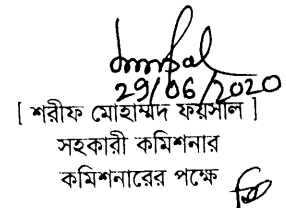 29/06/2020
[ শরীফ মোহাম্মদ ফয়সাল ]
সহকারী কমিশনার
কমিশনারের পক্ষে